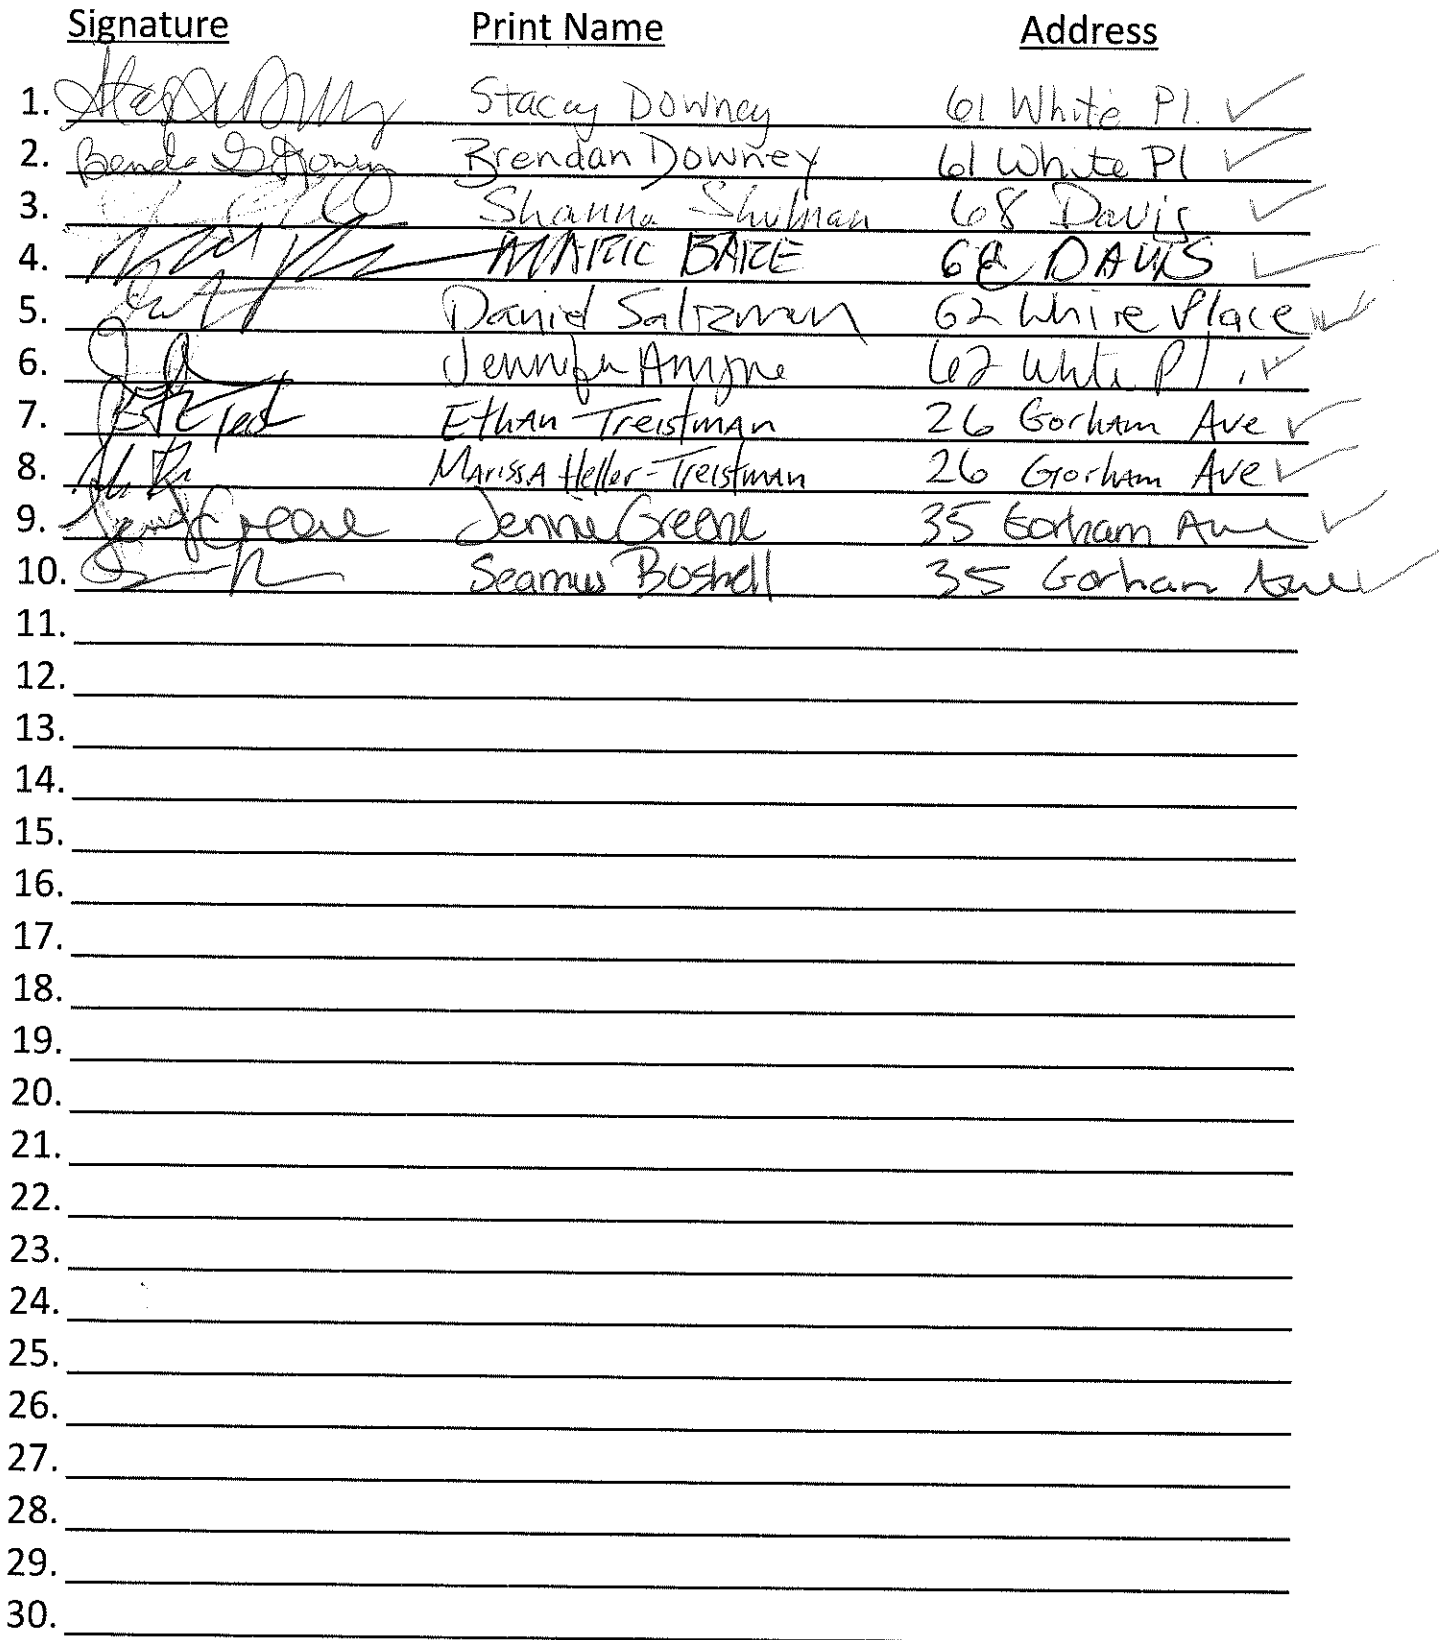 Signature Print Name Address
1. Stacey Downey 61 White Pl. ✓
2. Brendan Downey 61 White Pl ✓
3. Shanna Shulman 68 Davis ✓
4. 68 DAVIS ✓
5. Daniel Saltzman 62 White Place ✓
6. Jennifer 62 White Pl. ✓
7. Ethan Treistman 26 Gorham Ave ✓
8. Marissa Heller-Treistman 26 Gorham Ave ✓
9. Jenny Greene Jennie Greene 35 Gorham Ave ✓
10. Seamus Bushell 35 Gorham Ave ✓
11.
12.
13.
14.
15.
16.
17.
18.
19.
20.
21.
22.
23.
24.
25.
26.
27.
28.
29.
30.